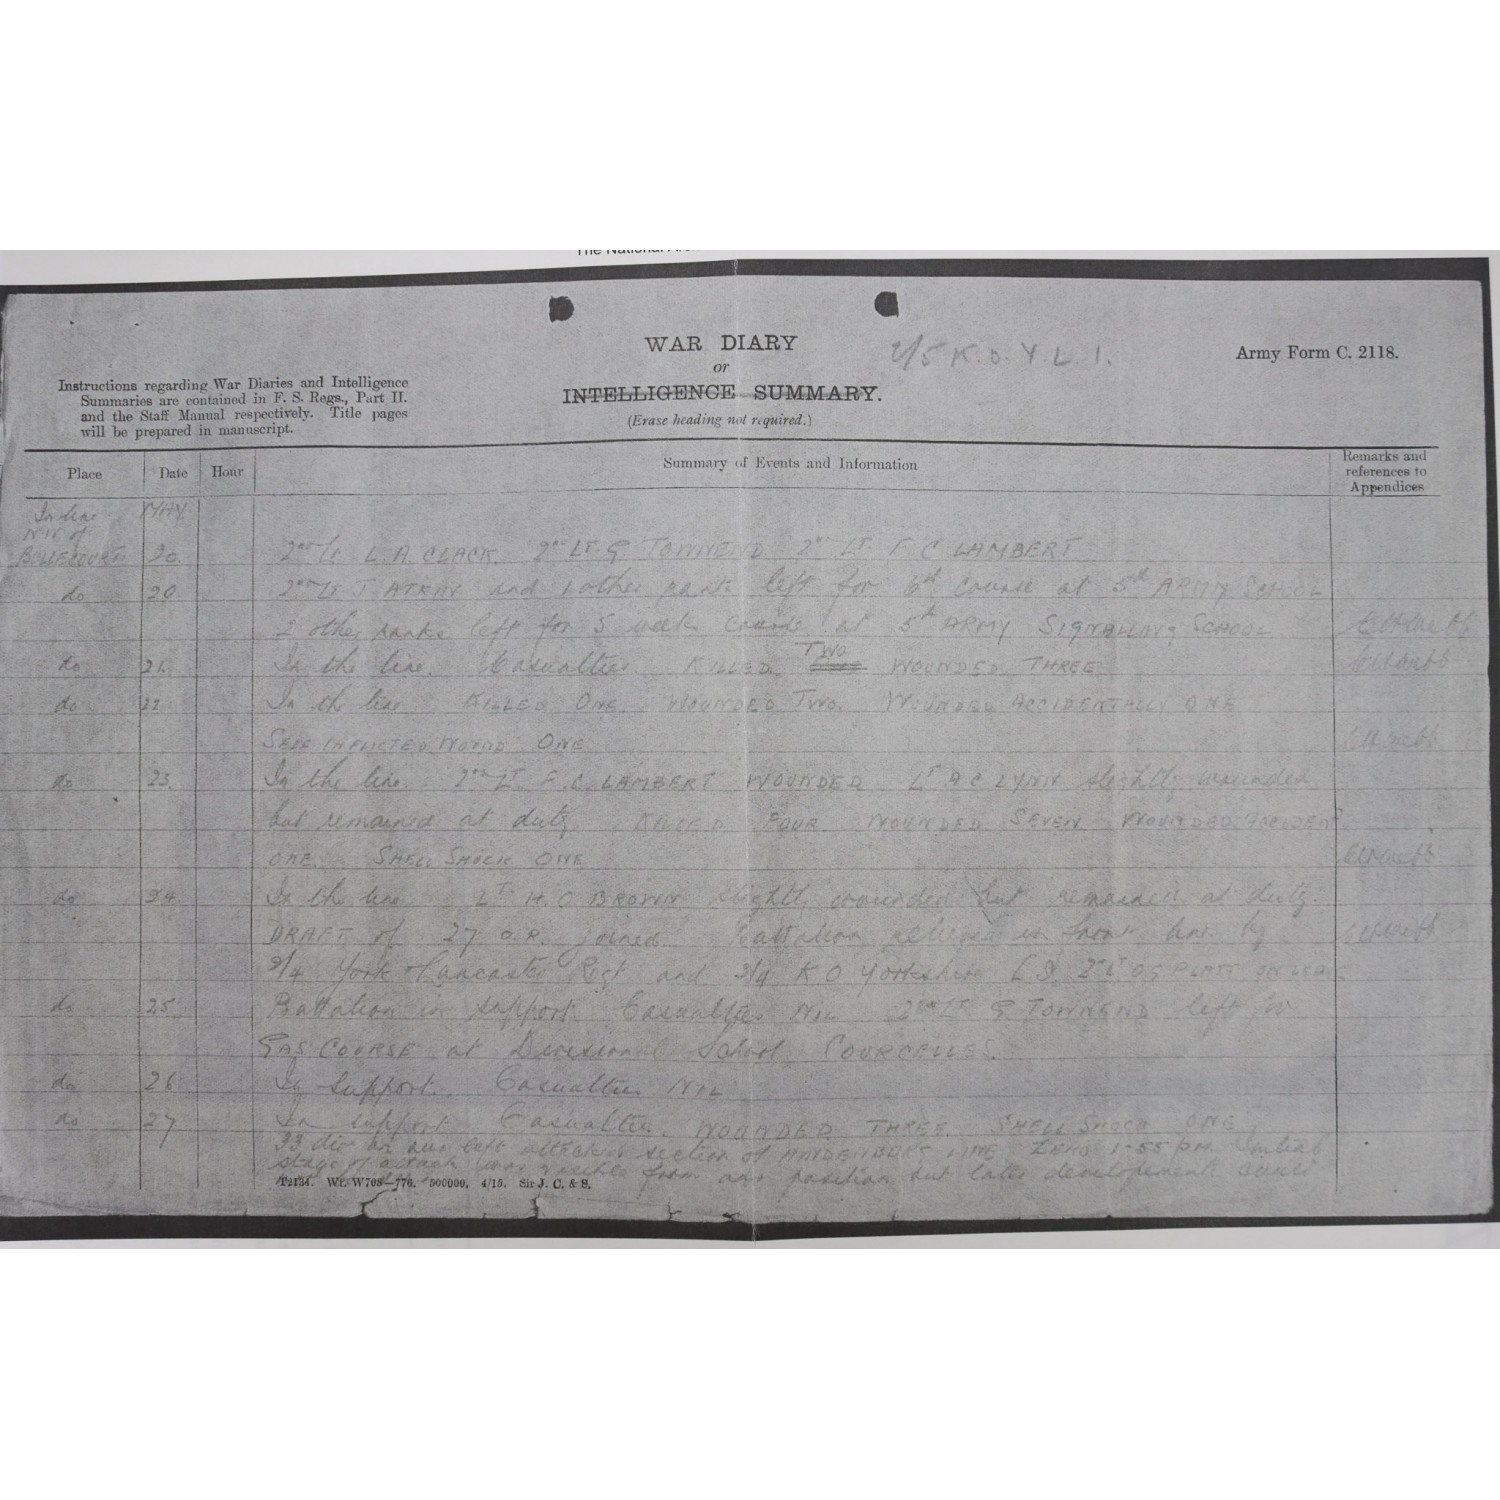 The National Arc
WAR DIARY
or
INTELLIGENCE SUMMARY.
(Erase heading not required.)
2/5 K.O.Y.L.I.
Army Form C. 2118.
Instructions regarding War Diaries and Intelligence
Summaries are contained in F. S. Regs., Part II.
and the Staff Manual respectively. Title pages
will be prepared in manuscript.
Place Date Hour Summary of Events and Information Remarks and
references to
Appendices
In line MAY
NW of
BULLECOURT 20. 2nd Lt L.A. CLACK. 2nd LT G TOWNEND 2nd LT. F C LAMBERT
do 20 2nd Lt J and 1 other rank left for 6th Course at 5th ARMY SCHOOL
2 other ranks left for 5 week course at 5th ARMY SIGNALLING SCHOOL
do 21. In the line. Casualties. KILLED TWO WOUNDED THREE
do 22 In the line KILLED ONE. WOUNDED TWO. WOUNDED ACCIDENTALLY ONE
SELF INFLICTED WOUND ONE
do 23. In the line 2nd LT. F.C. LAMBERT WOUNDED LT A C LYNN slightly wounded
but remained at duty KILLED FOUR. WOUNDED SEVEN WOUNDED ACCIDENT
ONE. SHELL SHOCK ONE
do 24 In the line LT H. O BROWN slightly wounded but remained at duty.
DRAFT of 27 O.R. joined. Battalion relieved in front line by
2/4 York & Lancaster Regt and 2/4 K O Yorkshire L I. 2nd LT O S PLATT ON LEAVE
do 25 Battalion in support. Casualties NIL 2nd Lt. G TOWNEND left for
GAS COURSE at Divisional School COURCELLES.
do 26 In support. Casualties NIL
do 27 In support. Casualties. WOUNDED THREE. SHELL SHOCK ONE
33 div on our left attacked section of HINDENBURG LINE ZERO 1-55 pm. Initial
stage of attack was visible from our position but later developments could
T2134. Wt. W708—776. 500000. 4/15. Sir J. C. & S.